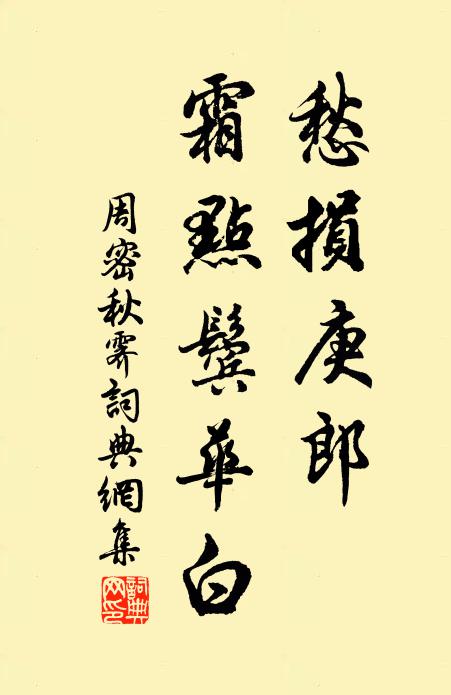 愁損庾郎
霜點鬢華白
周密秋霽詞典網集
詞典
网印